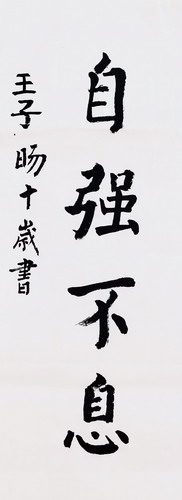 自强不息
王子旸十歲書